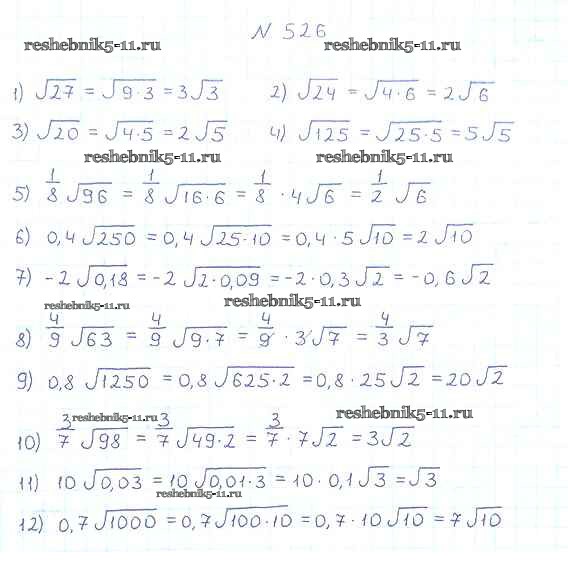 N 526
reshebnik5-11.ru reshebnik5-11.ru
1) √27 = √9·3 = 3√3 2) √24 = √4·6 = 2√6
3) √20 = √4·5 = 2√5 4) √125 = √25·5 = 5√5
reshebnik5-11.ru reshebnik5-11.ru
5) 1/8 √96 = 1/8 √16·6 = 1/8 · 4√6 = 1/2 √6
6) 0,4√250 = 0,4√25·10 = 0,4·5√10 = 2√10
7) -2√0,18 = -2√2·0,09 = -2·0,3√2 = -0,6√2
reshebnik5-11.ru reshebnik5-11.ru
8) 4/9 √63 = 4/9 √9·7 = 4/9 · 3√7 = 4/3 √7
9) 0,8√1250 = 0,8√625·2 = 0,8·25√2 = 20√2
reshebnik5-11.ru reshebnik5-11.ru
10) 3/7 √98 = 3/7 √49·2 = 3/7 · 7√2 = 3√2
11) 10√0,03 = 10√0,01·3 = 10·0,1√3 = √3
reshebnik5-11.ru
12) 0,7√1000 = 0,7√100·10 = 0,7·10√10 = 7√10